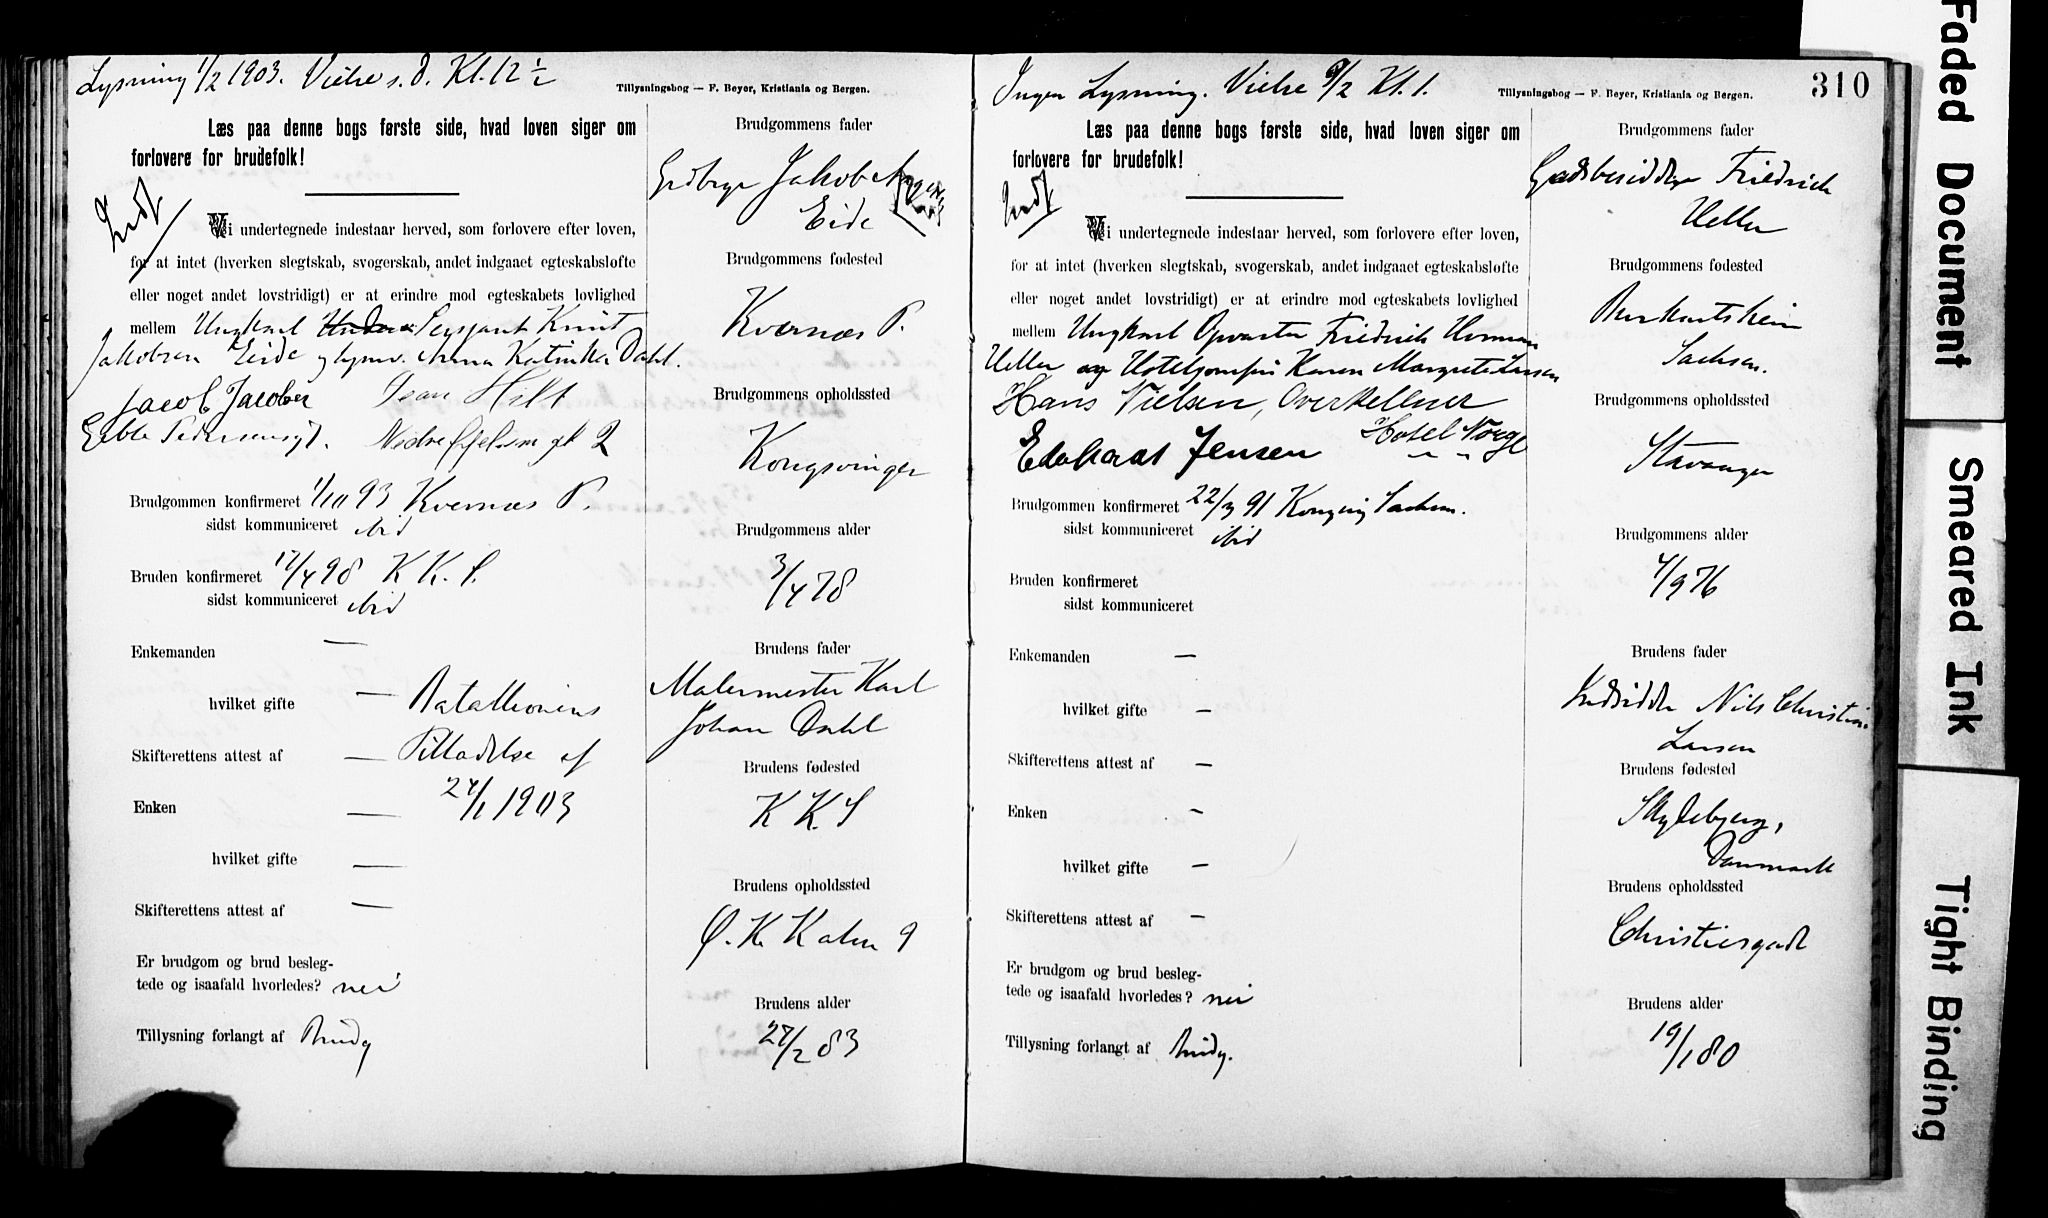 Lysning 1/2 1903. Vielse s. d. Kl. 12 1/2
Tillysningsbog — F. Beyer, Kristiania og Bergen.
Læs paa denne bogs første side, hvad loven siger om
forlovere for brudefolk!
Indf
Vi undertegnede indestaar herved, som forlovere efter loven,
for at intet (hverken slegtskab, svogerskab, andet indgaaet egteskabsløfte
eller noget andet lovstridigt) er at erindre mod egteskabets lovlighed
mellem Ungkarl Sergeant Knut
Jakobsen Eide og Anna Katinka Dahl.
Jacob Jacobsen
Nedre 2
Brudgommen konfirmeret 1/10 93 Kvernæs P.
sidst kommuniceret ibid
Bruden konfirmeret 17/4 98 K K. S.
sidst kommuniceret ibid
Enkemanden —
hvilket gifte —
Skifterettens attest af —
Bataillonens
Tilladelse af
24/1 1903
Enken —
hvilket gifte —
Skifterettens attest af —
Er brudgom og brud besleg-
tede og isaafald hvorledes? nei
Tillysning forlangt af Brudg
Brudgommens fader
Grdbrgr Jakob
Eide
Brudgommens fødested
Kvernæs P.
Brudgommens opholdssted
Kongsvinger
Brudgommens alder
3/4 78
Brudens fader
Malermester Karl
Johan Dahl
Brudens fødested
K K. S
Brudens opholdssted
Ø. K. 9
Brudens alder
27/2 83
Ingen Lysning. Vielse 9/2 Kl. 1.
Tillysningsbog — F. Beyer, Kristiania og Bergen.
310
Læs paa denne bogs første side, hvad loven siger om
forlovere for brudefolk!
Indf
Vi undertegnede indestaar herved, som forlovere efter loven,
for at intet (hverken slegtskab, svogerskab, andet indgaaet egteskabsløfte
eller noget andet lovstridigt) er at erindre mod egteskabets lovlighed
mellem Ungkarl Opvarter Friedrich Herman
og Hoteljomfru Karen Margrete Larsen
Hans Nielsen, Overkellner
Hotel Norge
Edvard Jensen
Brudgommen konfirmeret 22/3 91 Sachsen.
sidst kommuniceret ibid
Bruden konfirmeret
sidst kommuniceret
Enkemanden —
hvilket gifte —
Skifterettens attest af —
Enken —
hvilket gifte —
Skifterettens attest af —
Er brudgom og brud besleg-
tede og isaafald hvorledes? nei
Tillysning forlangt af Brudg.
Brudgommens fader
Gaardbesidder Friedrich
Brudgommens fødested
Sachsen.
Brudgommens opholdssted
Stavanger
Brudgommens alder
4/9 76
Brudens fader
Indsidder Nils Christian
Larsen
Brudens fødested
Skydebjerg,
Danmark
Brudens opholdssted
Christiesgade
Brudens alder
19/1 80
Faded Document
Smeared Ink
Tight Binding